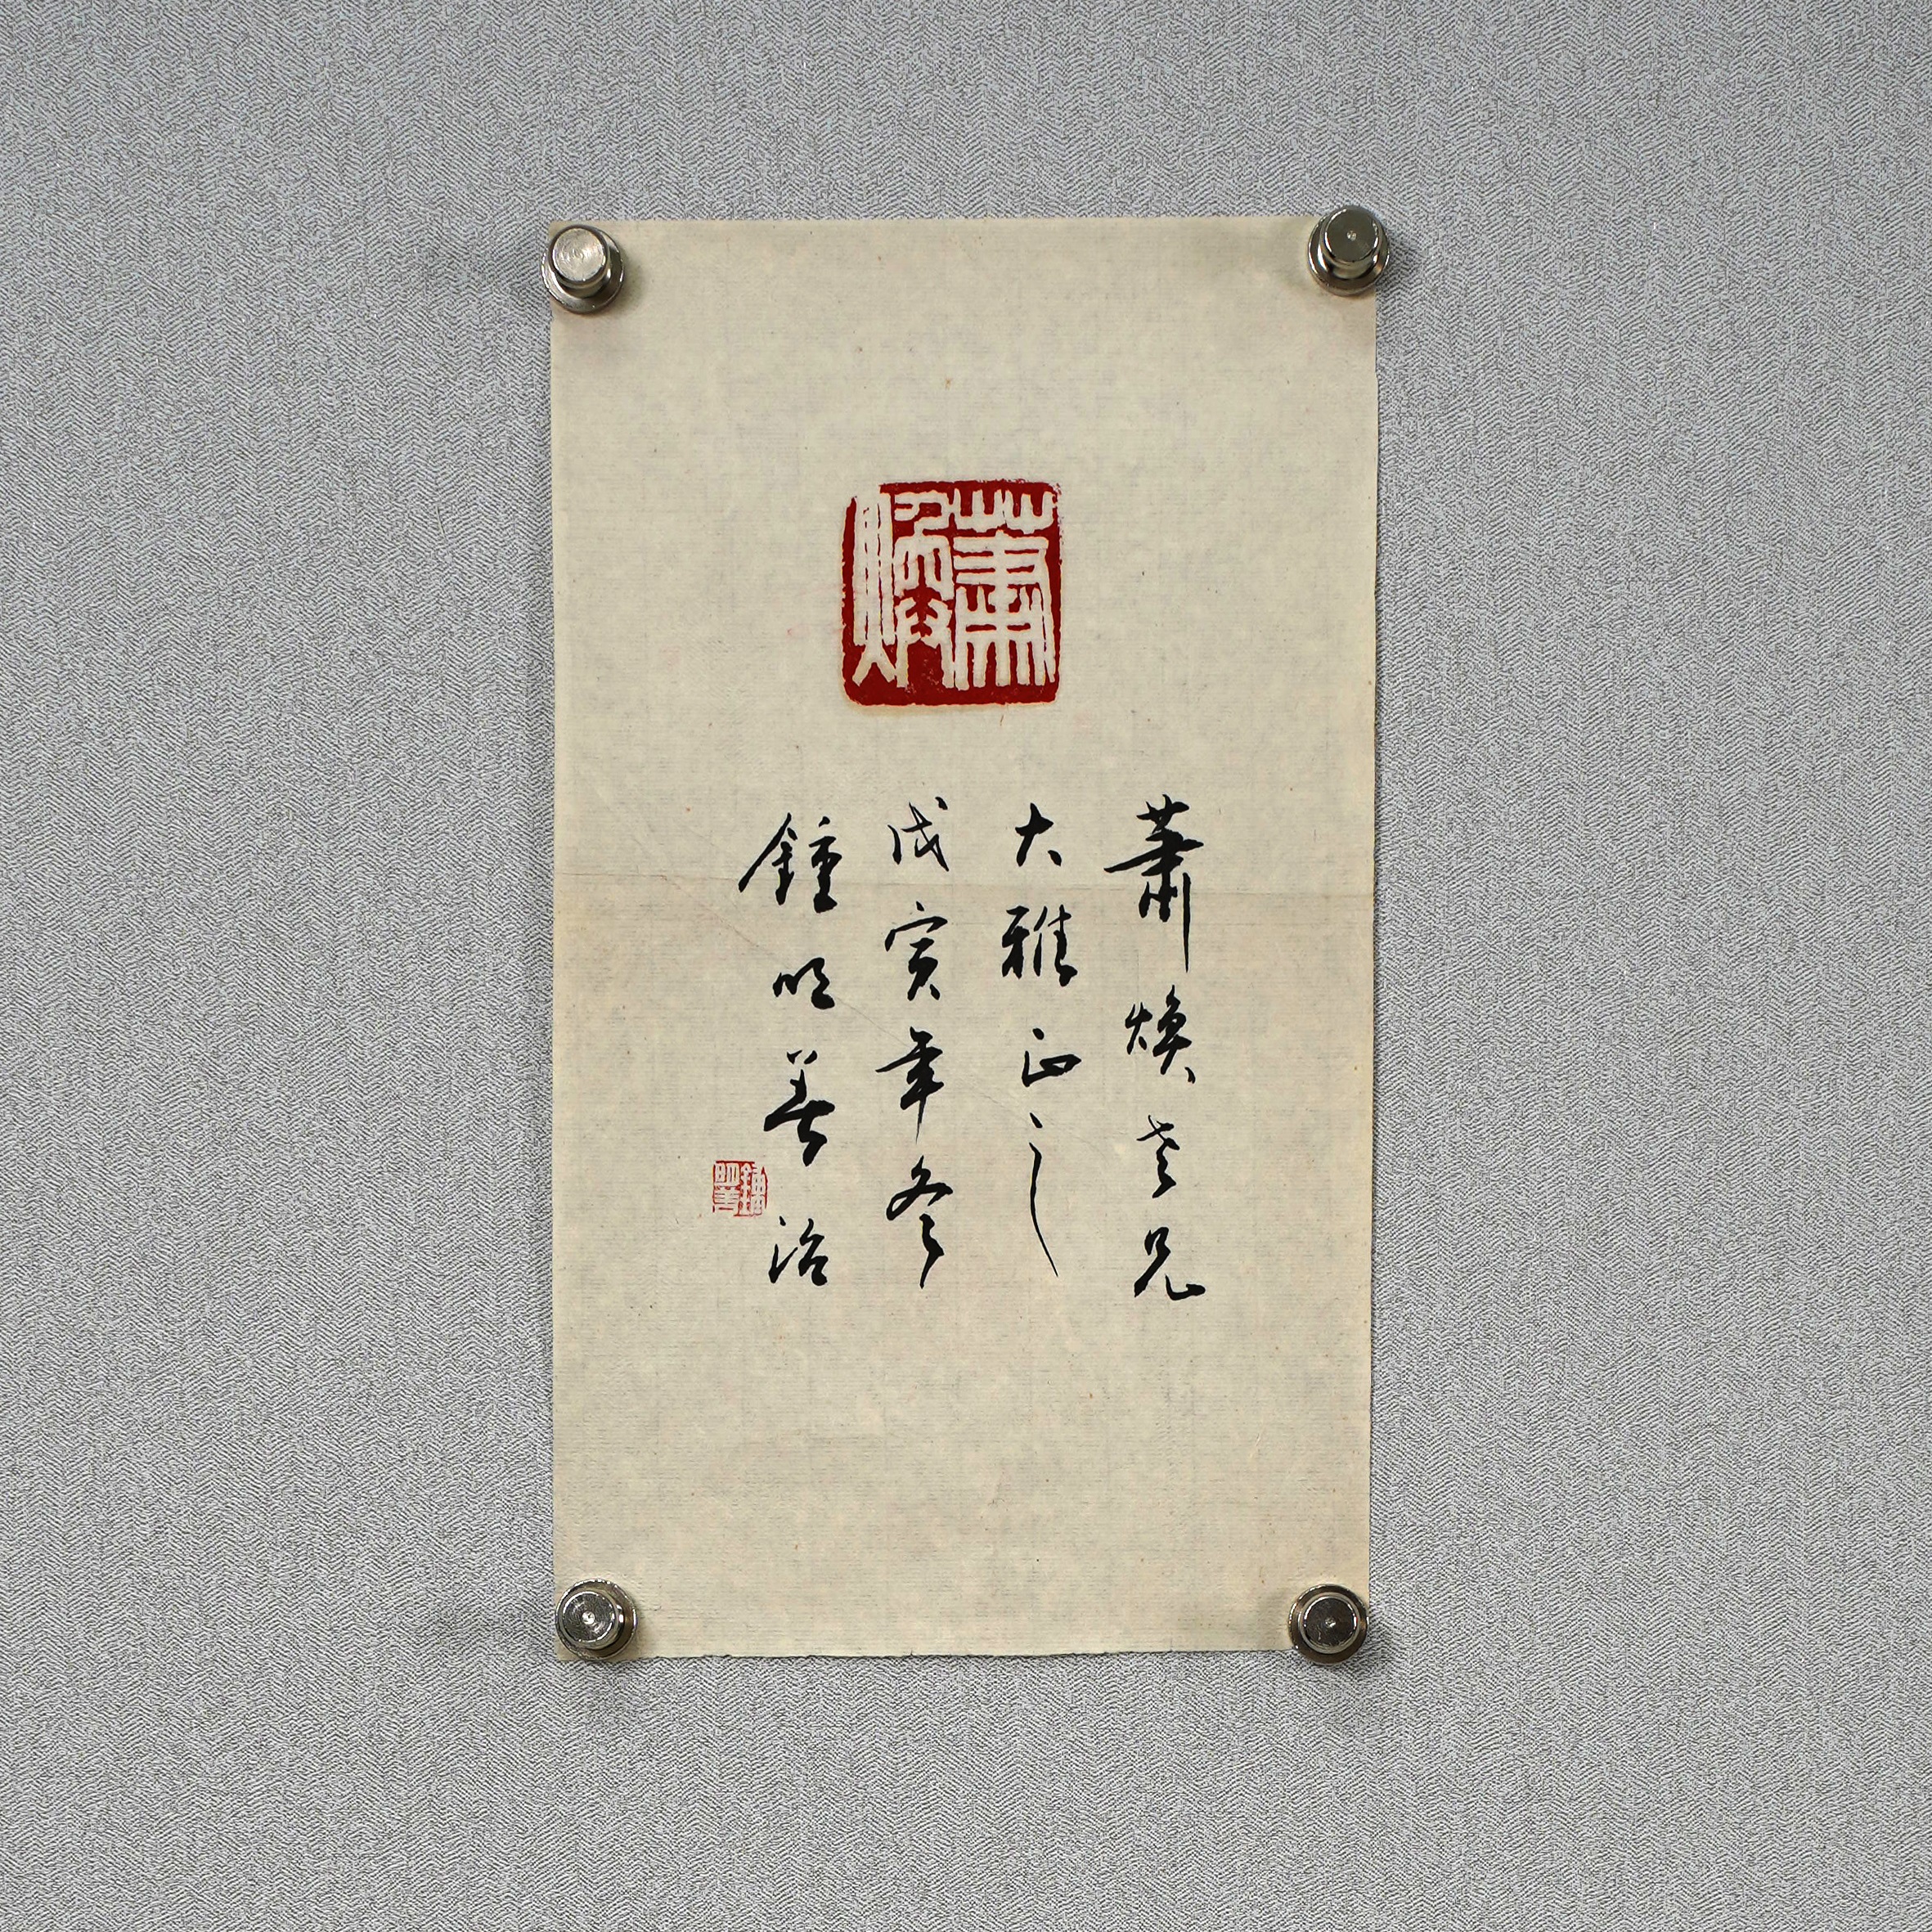 蕭煥老兄
大雅正之
戊寅年冬
鍾明善治
鍾明善